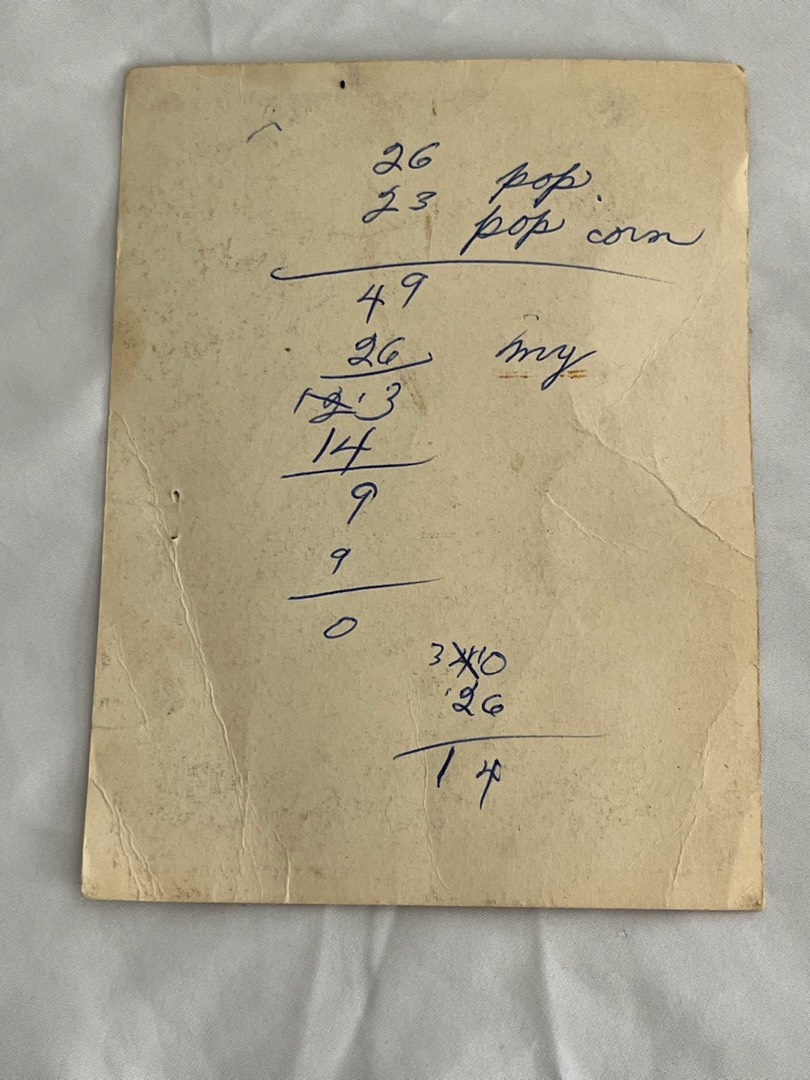 26 pop
23 pop corn
49
26 my
1213
14
9
9
0
3410
26
14